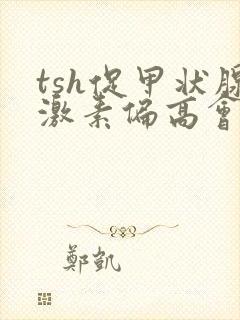 tsh促甲状腺
激素偏高會
鄭凱